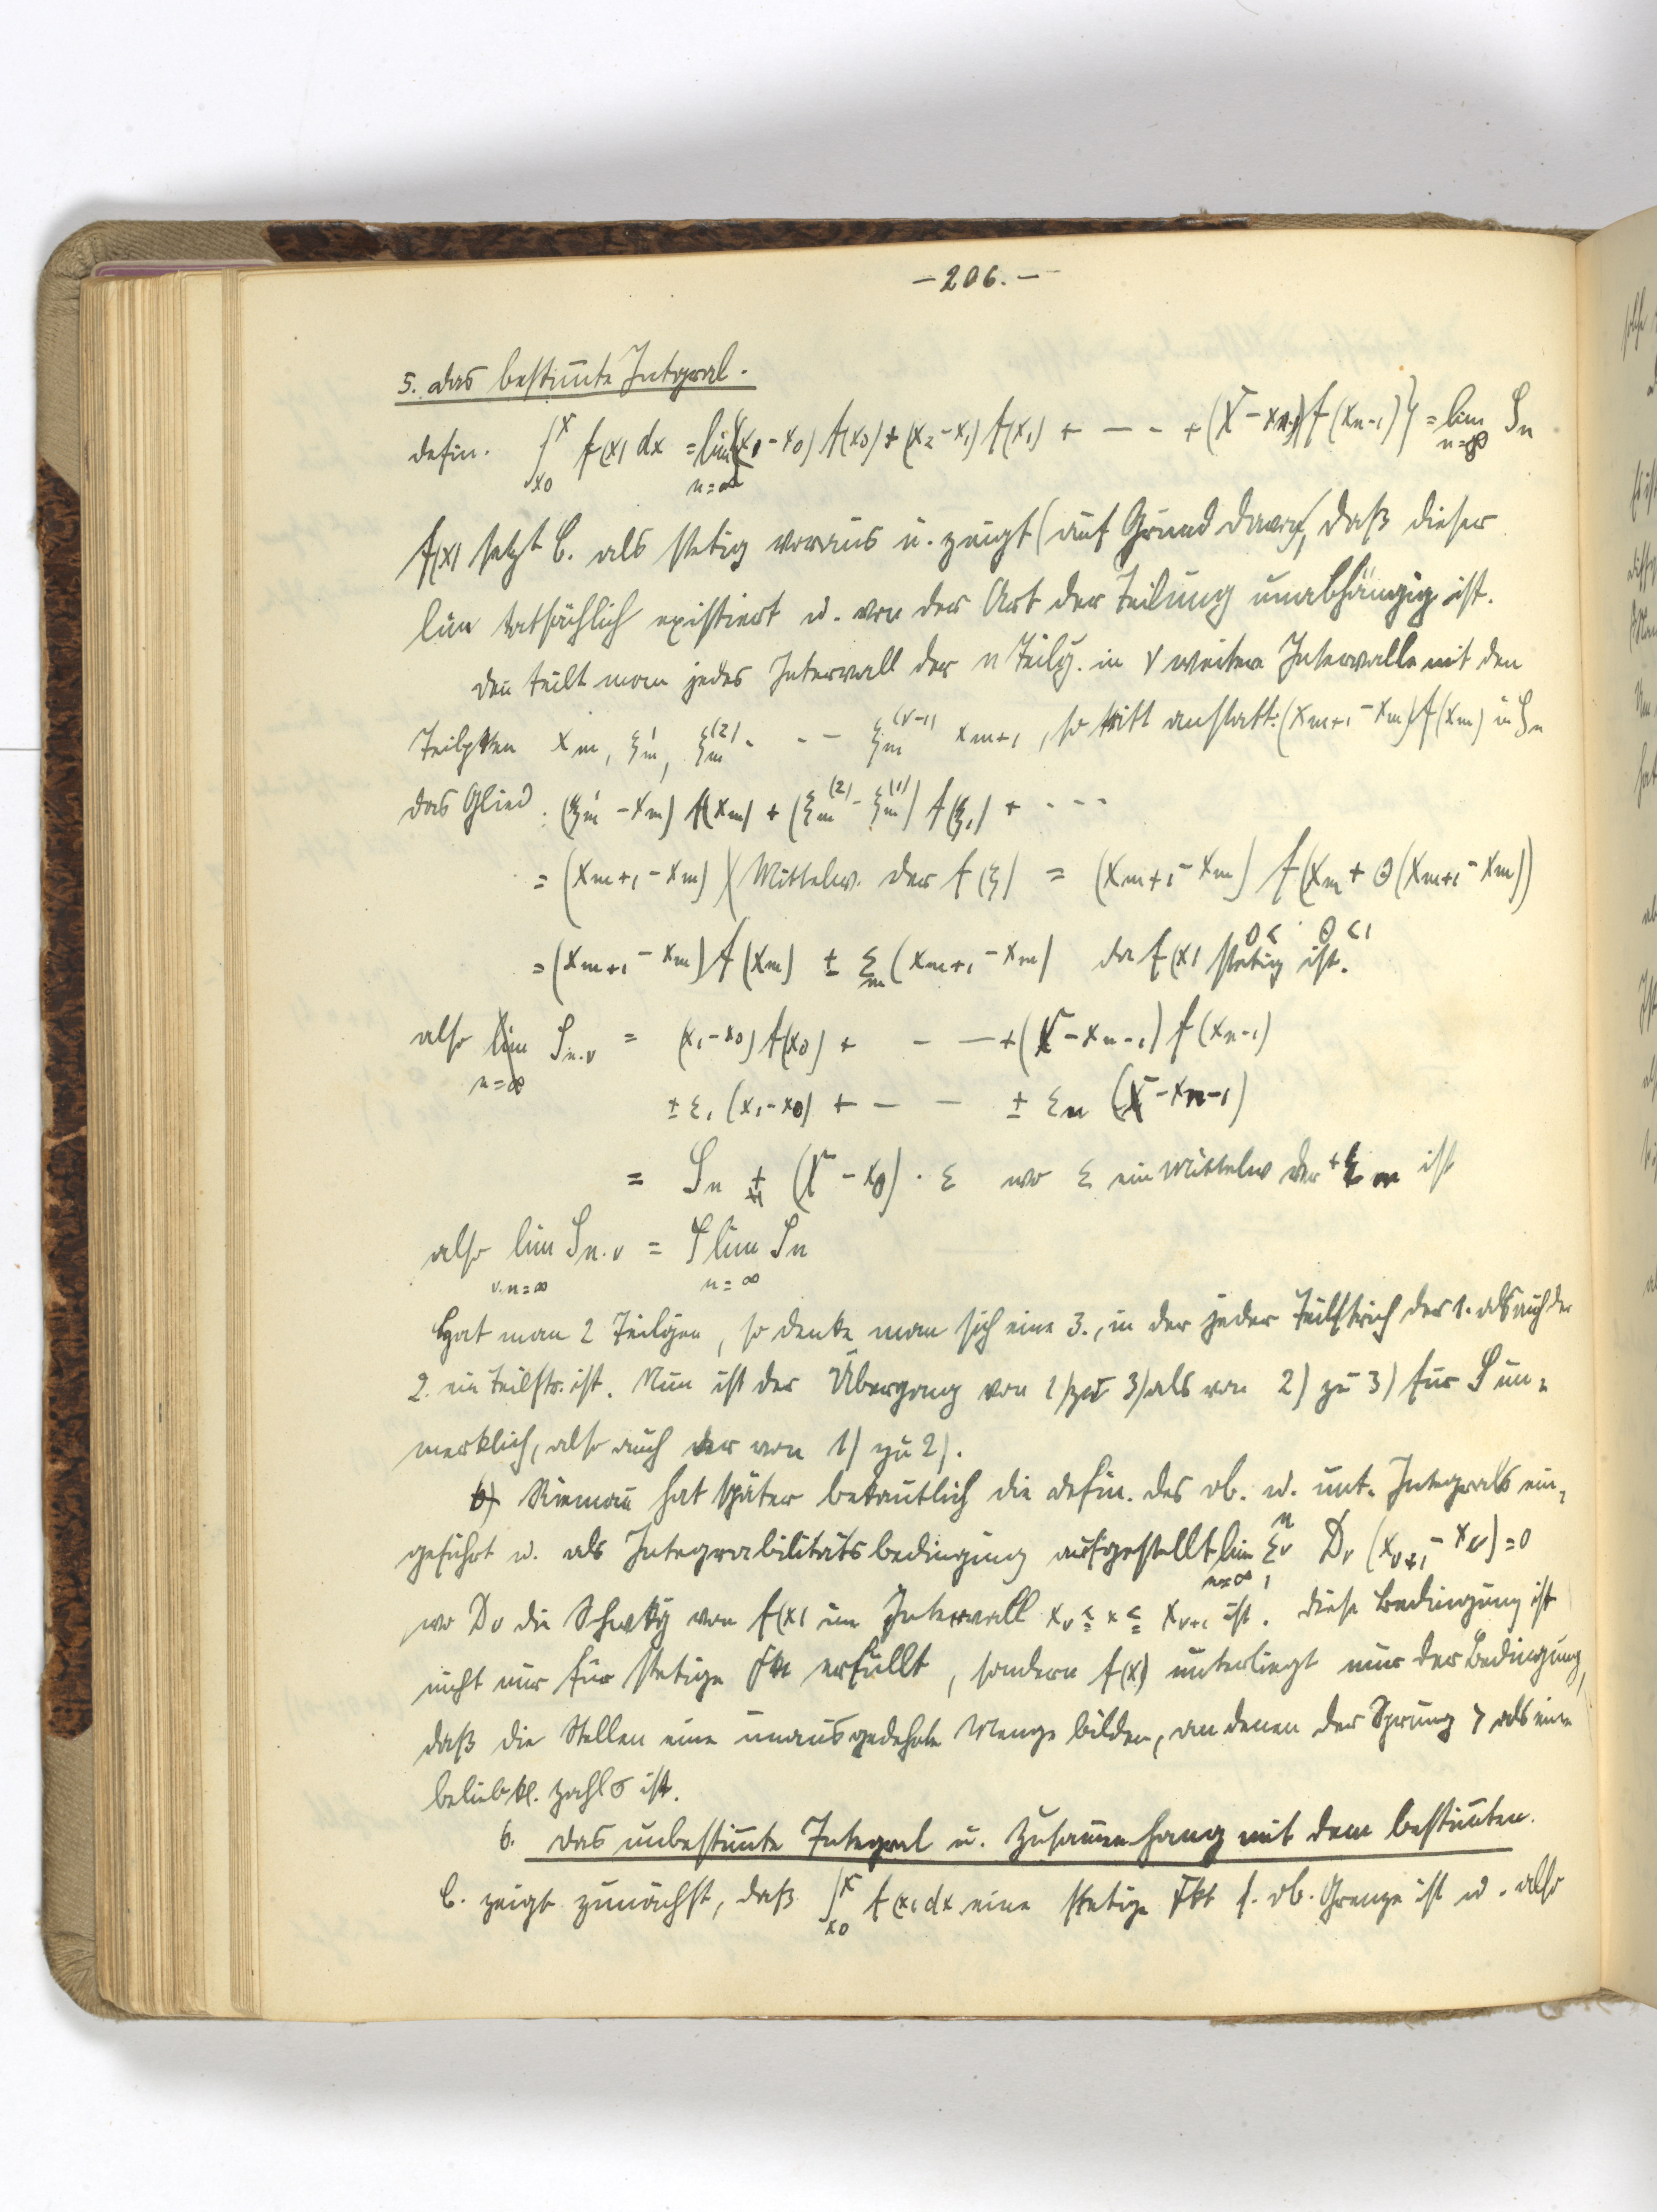 - 206. -
5. das bestim̅te Integral.
defin. ∫_{x0}^{X} f(x) dx = lim_{n=∞} {(x1 - x0) f(x0) + (x2 - x1) f(x1) + - - + (X - xn-1) f(xn-1)} = lim_{n=∞} Sn
f(x) setzt C. als stetig voraus u. zeigt (auf Grund davon), daß dieser
lim tatsächlich existiert u. von der Art der Teilung unabhängig ist.
Den̅ teilt man jedes Intervall der n Teilg. in ν weitere Intervalle mit den
Teilpkten xm, ξ'm, ξm^(2) - - - ξm^(ν-1) xm+1, so tritt anstatt: (xm+1 - xm) f(xm) in Sn
das Glied: (ξ'm - xm) f(xm) + (ξm^(2) - ξm^(1)) f(ξ1) + - - -
= (xm+1 - xm) (Mittelw. der f(ξ) = (xm+1 - xm) f(xm + Θ(xm+1 - xm))
0 < Θ < 1
= (xm+1 - xm) f(xm) ± εm (xm+1 - xm) da f(x) stetig ist.
also lim_{n=∞} Sn.ν = (x1 - x0) f(x0) + - - + (X - xn-1) f(xn-1)
± ε1 (x1 - x0) + - - ± εn (X - xn-1)
= Sn ± (X - x0) · ε wo ε ein Mittelw der ± εm ist
also lim_{ν.n=∞} Sn.ν = lim_{n=∞} Sn
Hat man 2 Teilgen, so denke man sich eine 3., in der jeder Teilstrich der 1. als auch der
2. ein Teilstr. ist. Nun ist der Übergang von 1) zu 3) als von 2) zu 3) für S un=
merklich, also auch der von 1) zu 2).
6) Rieman̅ hat später bekan̅tlich die defin. des ob. u. unt. Integrals ein=
geführt u. als Integrabilitätsbedingung aufgestellt lim_{n=∞} Σν_{1}^{n} Dν (xν+1 - xν) = 0
wo Dν die Schwkg von f(x) im Intervall xν ≦ x ≦ xν+1 ist. Diese Bedingung ist
nicht nur für stetige Fkt erfüllt, sondern f(x) unterliegt nur der Bedingung,
daß die Stellen eine unausgedehnte Menge bilden, an denen der Sprung > als eine
beliebkl. Zahl σ ist.
6. das unbestim̅te Integral u. Zusam̅enhang mit dem bestim̅ten.
C. zeigt zunächst, daß ∫_{x0}^{X} f(x) dx eine stetige Fkt s. ob. Grenze ist u. also